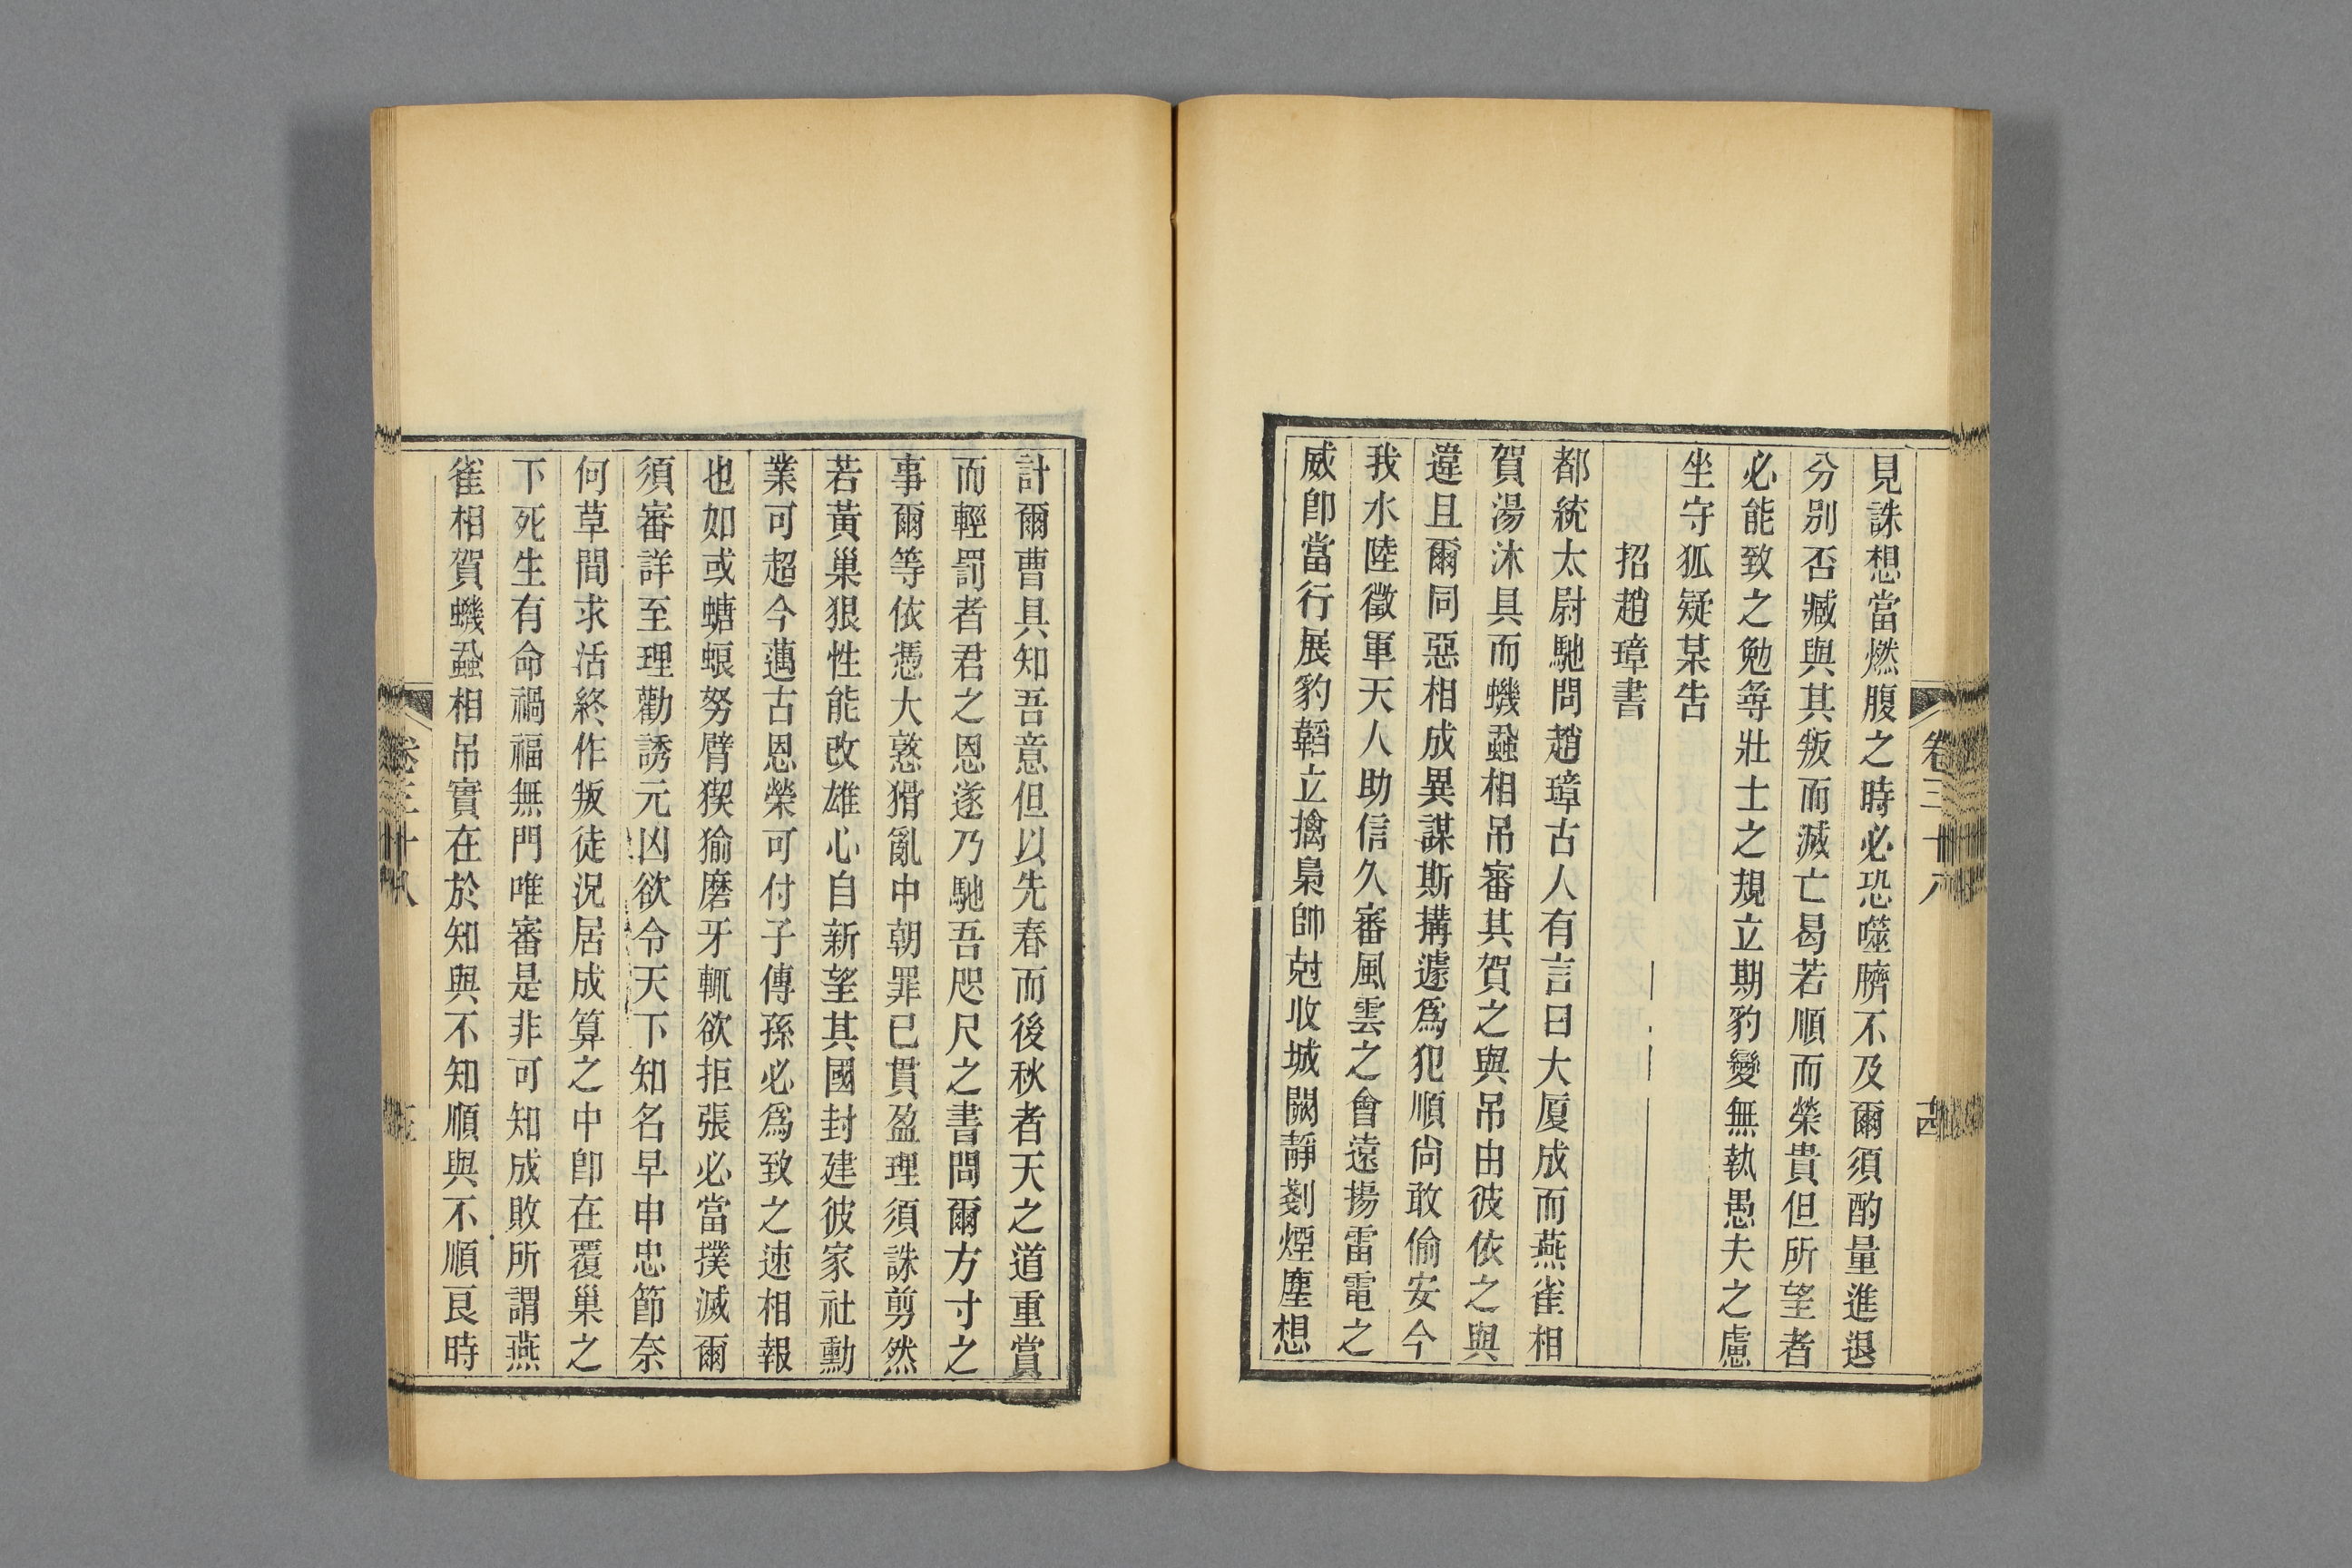 見誅想當燃腹之時必恐噬臍不及爾須酌量進退
分别否臧與其叛而滅亡曷若順而榮貴但所望者
必能致之勉尋壯士之規立期豹變無執愚夫之慮
坐守狐疑某告
招趙璋書
都統太尉馳問趙璋古人有言曰大厦成而燕雀相
賀湯沐具而蟣蝨相吊審其賀之與吊由彼依之與
違且爾同惡相成異謀斯搆遽爲犯順尙敢偷安今
我水陸徵軍天人助信久審風雲之會遠揚雷電之
威卽當行展豹韜立擒梟帥尅收城闕靜剗煙塵想
計爾曹具知吾意但以先春而後秋者天之道重賞
而輕罰者君之恩遂乃馳吾咫尺之書問爾方寸之
事爾等依憑大憝猾亂中朝罪已貫盈理須誅剪然
若黃巢狠性能改雄心自新望其國封建彼家社勳
業可超今邁古恩榮可付子傳孫必爲致之速相報
也如或螗蜋努臂猰㺄磨牙輒欲拒張必當撲滅爾
須審詳至理勸誘元凶欲令天下知名早申忠節奈
何草間求活終作叛徒況居成算之中卽在覆巢之
下死生有命禍福無門唯審是非可知成敗所謂燕
雀相賀蟣蝨相吊實在於知與不知順與不順良時
卷三十八